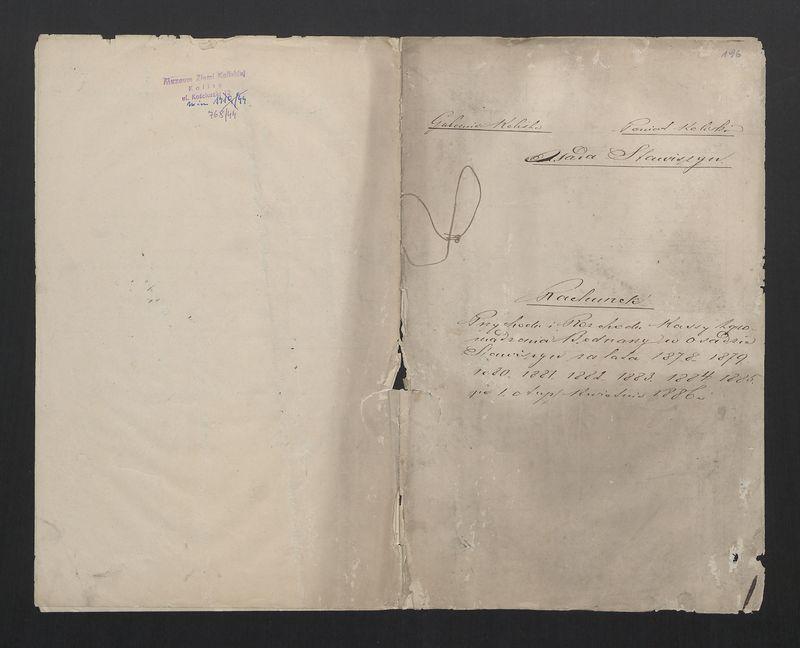 Muzeum Ziemi Kaliskiej
Kalisz
ul. Kościuszki 12
768/44
196
Gubernia Kaliska
Powiat Kaliski
Osada Stawiszyn
Rachunek
Przychodu i Rozchodu Kassy Zgro-
madzenia Bednarzy w Osadzie
Stawiszyn za lata 1878. 1879
1880. 1881. 1882. 1883. 1884. 1885.
po 1. Kwietnia 1886 r.